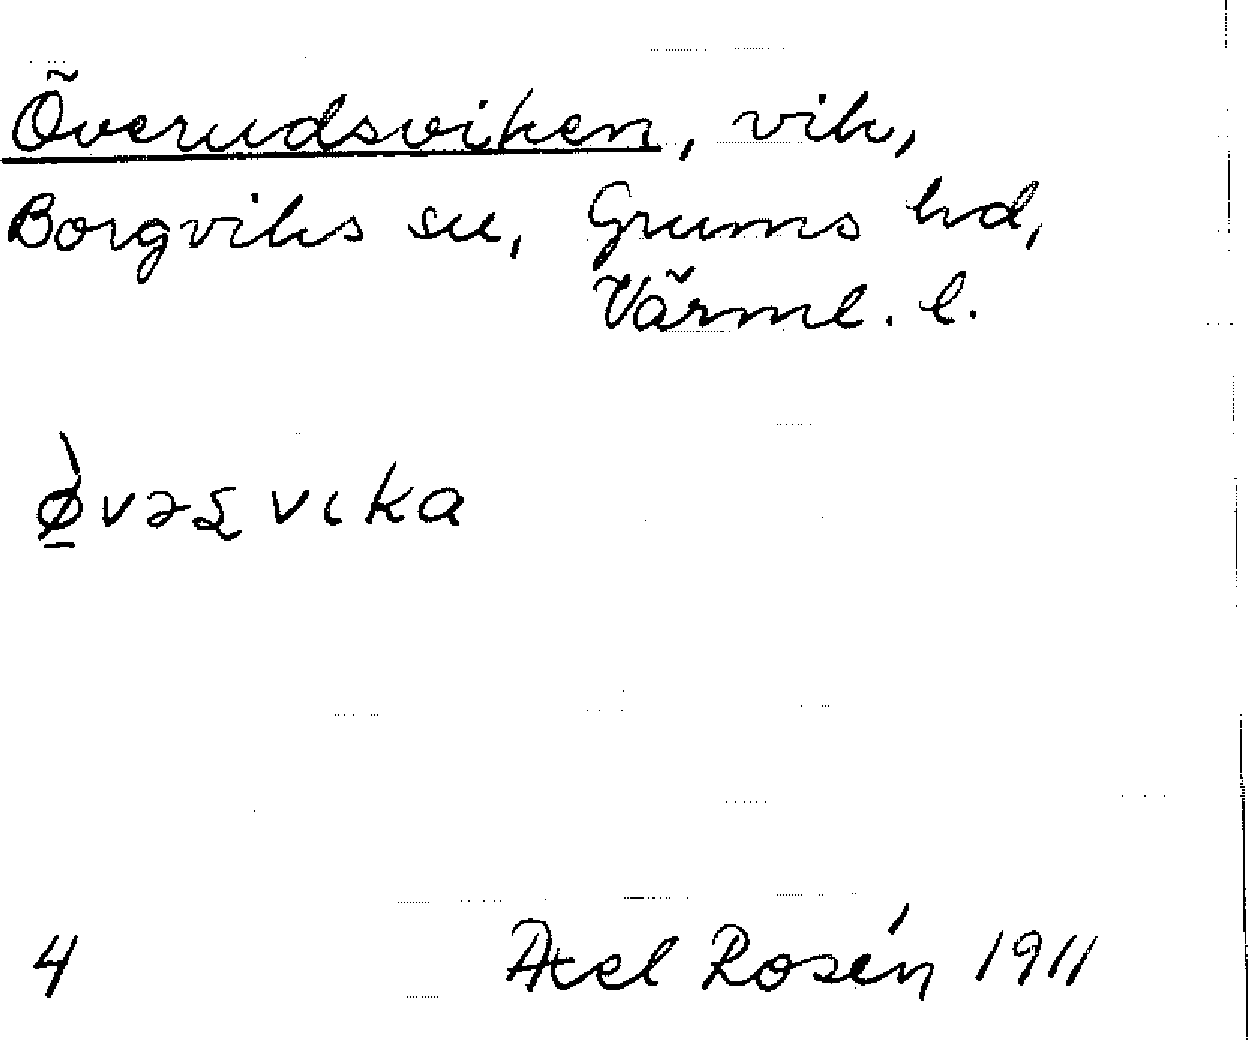 Överudsviken, vik,
Borgviks sn, Grums hd,
Värml. l.
ø̱̀vəʂ vɩka
4 Axel Rosén 1911